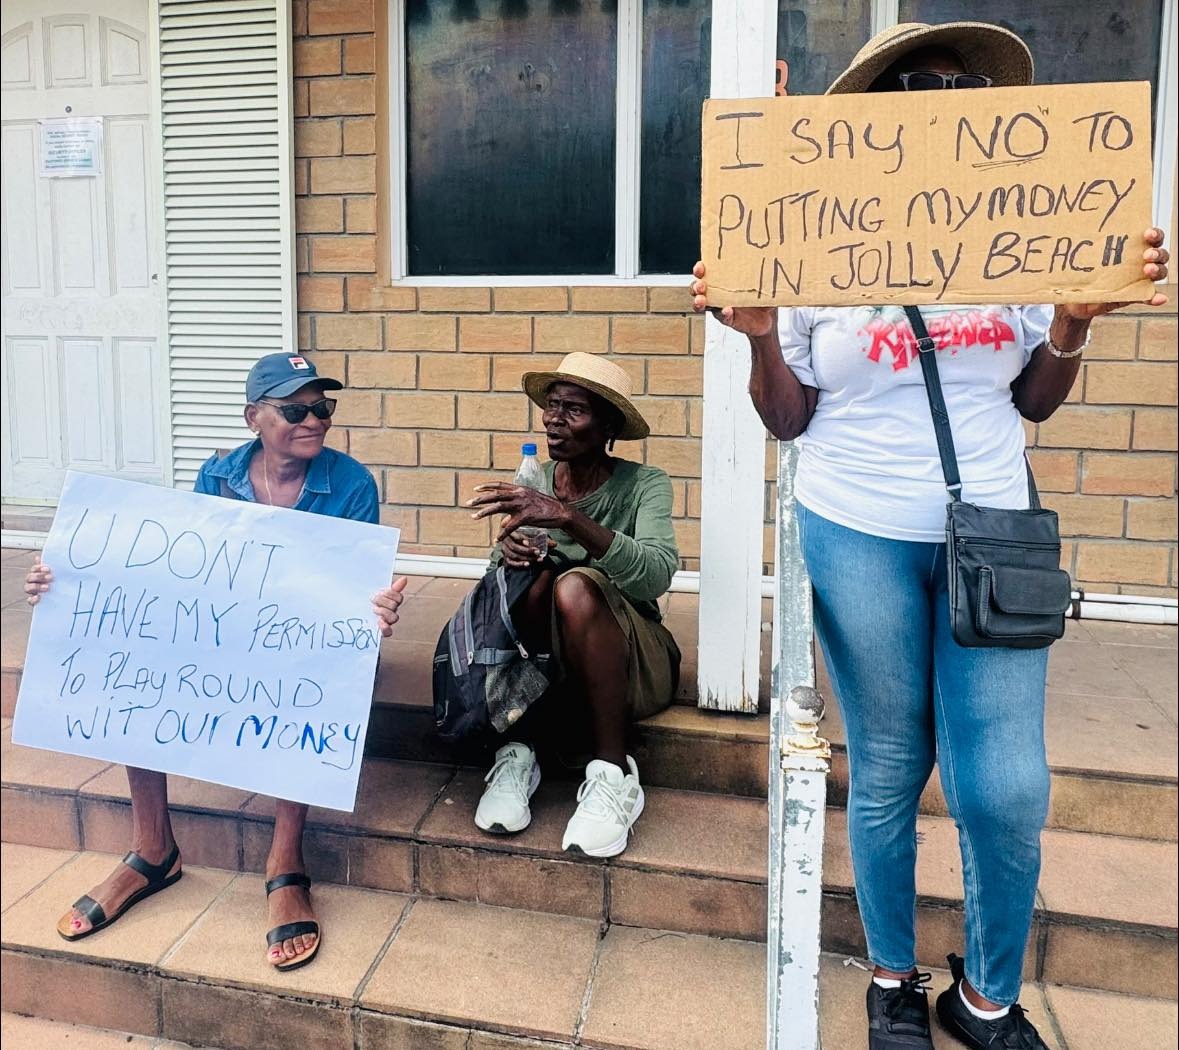 U DON'T
HAVE MY PERMISSION
To PLAY ROUND
WIT OUR MONEY
I SAY "NO" TO
PUTTING MY MONEY
IN JOLLY BEACH
FILA
R